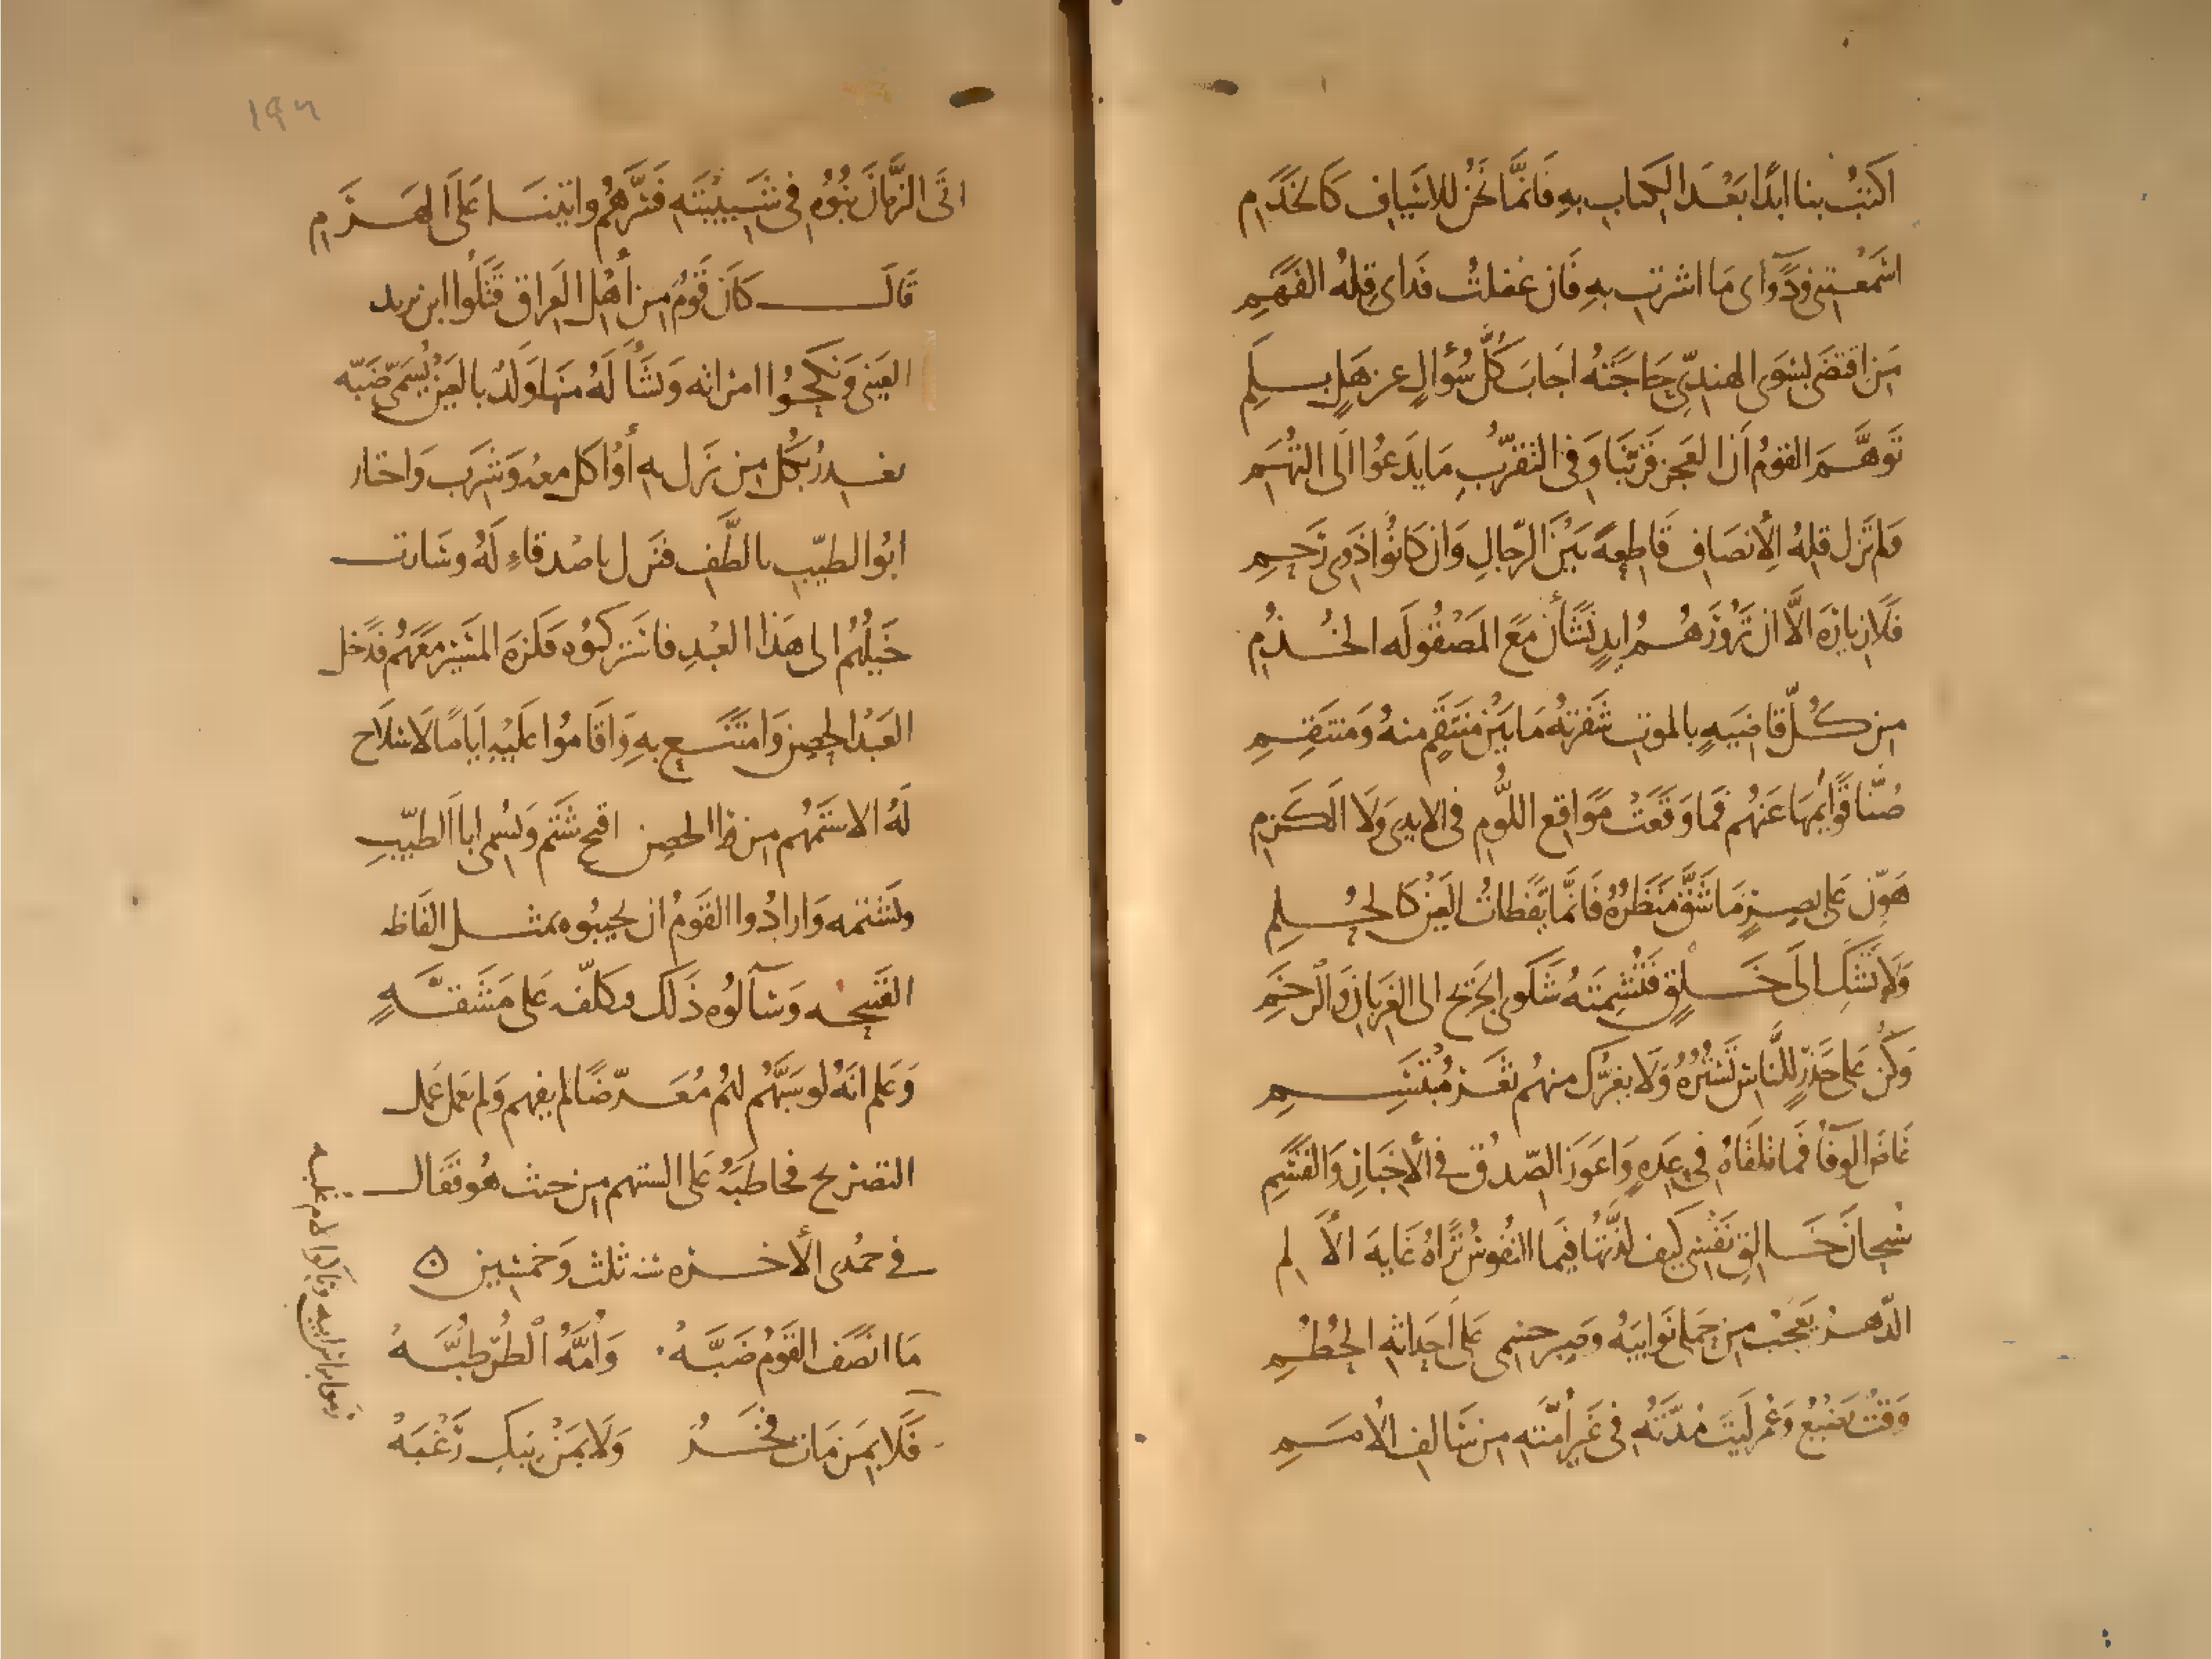 اكتُبْ بنا ابدًا بَعْدَ الكِتابِ بهِ فَانمَّا نَحْنُ للاسْيافِ كَالخَدَمِ
اسْمَعْتِني وَدَوَآى مَا اشرتِ بهِ فَان غفلتُ فَدَاى قِلهُ الفَهَمِ
مَنِ اقتضَى بسِوَى الهِنديِّ حَاجَتهُ اجَابَ كُلَّ سُؤالٍ عن هَلٍ بِلَمِ
تَوهَّمَ القومُ اَنَّ العَجزَ قرَّبنَا وَفي التقرُّبِ مَا يَدعُوا الَى التُهَمِ
وَلم تَزل قِلهُ الأِنصَافِ قَاطِعهً بَيْنَ الرِّجالِ وَان كانوُا ذَوِى رَحِمِ
فَلا زيارَة الَّا ان تَزُورَهُمُ ايدٍ نَشأنَ مَعَ المَصْقُولَه الخُذُمِ
مِن كُلّ قاضيَهٍ بالموتِ شَفرَتهُ مَا بَيْنَ مُنتَقَمٍ منهُ وَمنتقِمِ
صُنّا قَوايمَهَا عَنهُم فمَا وَقعَتْ مَوَاقِعَ اللُّومِ في الايدى وَلَا الكَزمِ
هَوِّن عَلى بصرٍ مَا شَقَّ مَنظَرُهُ فَانَّمَا يَقَظَاتُ العَيْن كَالحُلمِ
وَلَا تَشَكَّ الَى خَلْقٍ فتُشمِتَهُ شَكوَى الجَرِيحِ الى الغِربَانِ وَالرَّخَمِ
وَكُنْ عَلى حَذرٍ للنَّاسِ تَسْتُرُهُ وَلَا يغرُّكَ منهُم ثغرُ مُبْتَسِمِ
غاضَ الوفَآُ فمَا تَلقَاهُ في عِدَهٍ وَاعوَزَ الصّدقُ في الأخبَارِ وَالقسَمِ
سُبحَانَ خَالِقِ نَفْسِى كَيف لذَّتهُا فيمَا النفُوسُ تَرَاهُ غَايهَ الأَلمِ
الدّهرُ يَعجَبُ مِن حَملى نَوايبَهُ وَصَبرِ جسمى عَلى اَحداثهِ الحُطُمِ
وَقتٌ يَضيعُ وَعُمرٌ لَيتَ مُدَّتَهُ في غَيرِ اُمَّتهِ مِن سَالفِ الأُمَمِ
اتَى الزَّمانَ بَنوُهُ في شَبِيْبَتهِ فَسَرَّهُم وَاتينَا عَلَى الهَرَمِ
قَالَ كانَ قَومٌ مِن اَهْلِ العِرَاقِ قَتَلُوا ابن يزيد
العَينى وَنكَحُوا امرَاته وَنشَأ لَهُ منهَا وَلَدٌ بالعَين يُسَمّى ضَبّه
يغدِرُ بكُلِّ مِن نزل به أوْ اكل معهُ وَشرَب وَاجتاز
ابُوا الطيّب بالطَّفِ فنزل باصْدقاءٍ لَهُ وسَارت
خَيلهُم الى هَذا العَبْدِ فاستَركبُوه فَلزِمَهُ المَسير مَعَهُم فدَخل
العَبدُ الحِصن وَامتَنَع بهِ وَاقَامُوا عَلَيْهِ ايَامًا لَا سَلاح
لَهُ الا شَتمهُم مِن وَرَا الحِصِن اقبح شَتم وَيُسمى ابا الطيّبِ
وَيَشتمه وَارادُوا القَومُ ان يجيبُوه بمثل الفَاظه
القَبيحَه وَسَآلُوه ذَلك فتكلّفه عَلى مَشَقّهٍ
وَعلم انهُ لو سَبَّهُم لهُم مُعَرّضًا لم يفهم وَلم يعمَل عَمَل
التصريح فخاطبَهُ عَلى السنتهم مِن حيث هُو فقَال
في جمُدى الأخره سنه ثلث وَخمسِين
مَا انصَفَ القَومُ ضَبَّهْ وَاُمَّهُ الطُرطبَّهْ
رَمَوا براسِ ابيه وَبآكوا الام غلبه
فَلا بِمَن مَاتَ فخرٌ وَلَا بمَنْ نِيكَ رَغْبَهْ
١٩٦